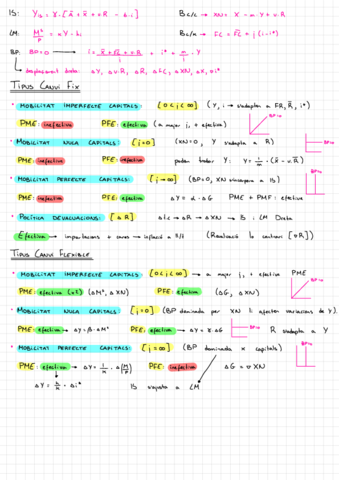 IS: Y_IS = γ · [Ā + x̄ + v·R - b·i]
B c/c → XN = X - m·Y + v·R
LM: M^s/P = k·Y - h·i
B c/k → FC = FC̄ + j (i - i*)
BP: BP=0 → i =
+ i* + m/j · Y
desplaçament dreta: ΔY, v·R, ΔR, ΔFC, ΔXN, ΔX, i*
TIPUS CANVI FIX
• MOBILITAT IMPERFECTE CAPITALS [0 < j < ∞] (Y, i → s'adapten a FC, R, i*)
PME: inefectiva PFE: efectiva (a major j, + efectiva) BP=0
• MOBILITAT NULA CAPITALS [j=0] (XN=0, Y s'adapta a R) BP=0
PME: inefectiva PFE: inefectiva poden trobar Y: Y = 1/m · (x̄ - v·R)
• MOBILITAT PERFECTE CAPITALS [j → ∞] (BP=0, XN s'incorpora a IS)
PME: inefectiva PFE: efectiva ΔY = α · ΔG PME + PMF: efectiva
• POLÍTICA DEVALUACIONS [ΔR] Δtc → ΔR → ΔXN → IS i LM Dreta
Efectiva → importacions + cares → inflació a ll/t
TIPUS CANVI FLEXIBLE
• MOBILITAT IMPERFECTE CAPITALS [0 < j < ∞] → a major j, + efectiva PME
PME: efectiva (ΔM^s, ΔXN) PFE: efectiva (ΔG, ΔXN) BP=0
• MOBILITAT NULA CAPITALS [j=0] (BP dominada per XN i efecten variacions de Y). BP=0
PME: efectiva → ΔY = β·ΔM^s PFE: efectiva → ΔY = γ·ΔG R s'adapta a Y
• MOBILITAT PERFECTE CAPITALS [j = ∞] (BP dominada x capitals) BP=0
PME: efectiva → ΔY = 1/k · Δ(M/P) PFE: inefectiva ΔG = ▽XN
ΔY = h/k · Δi* IS s'ajusta a LM